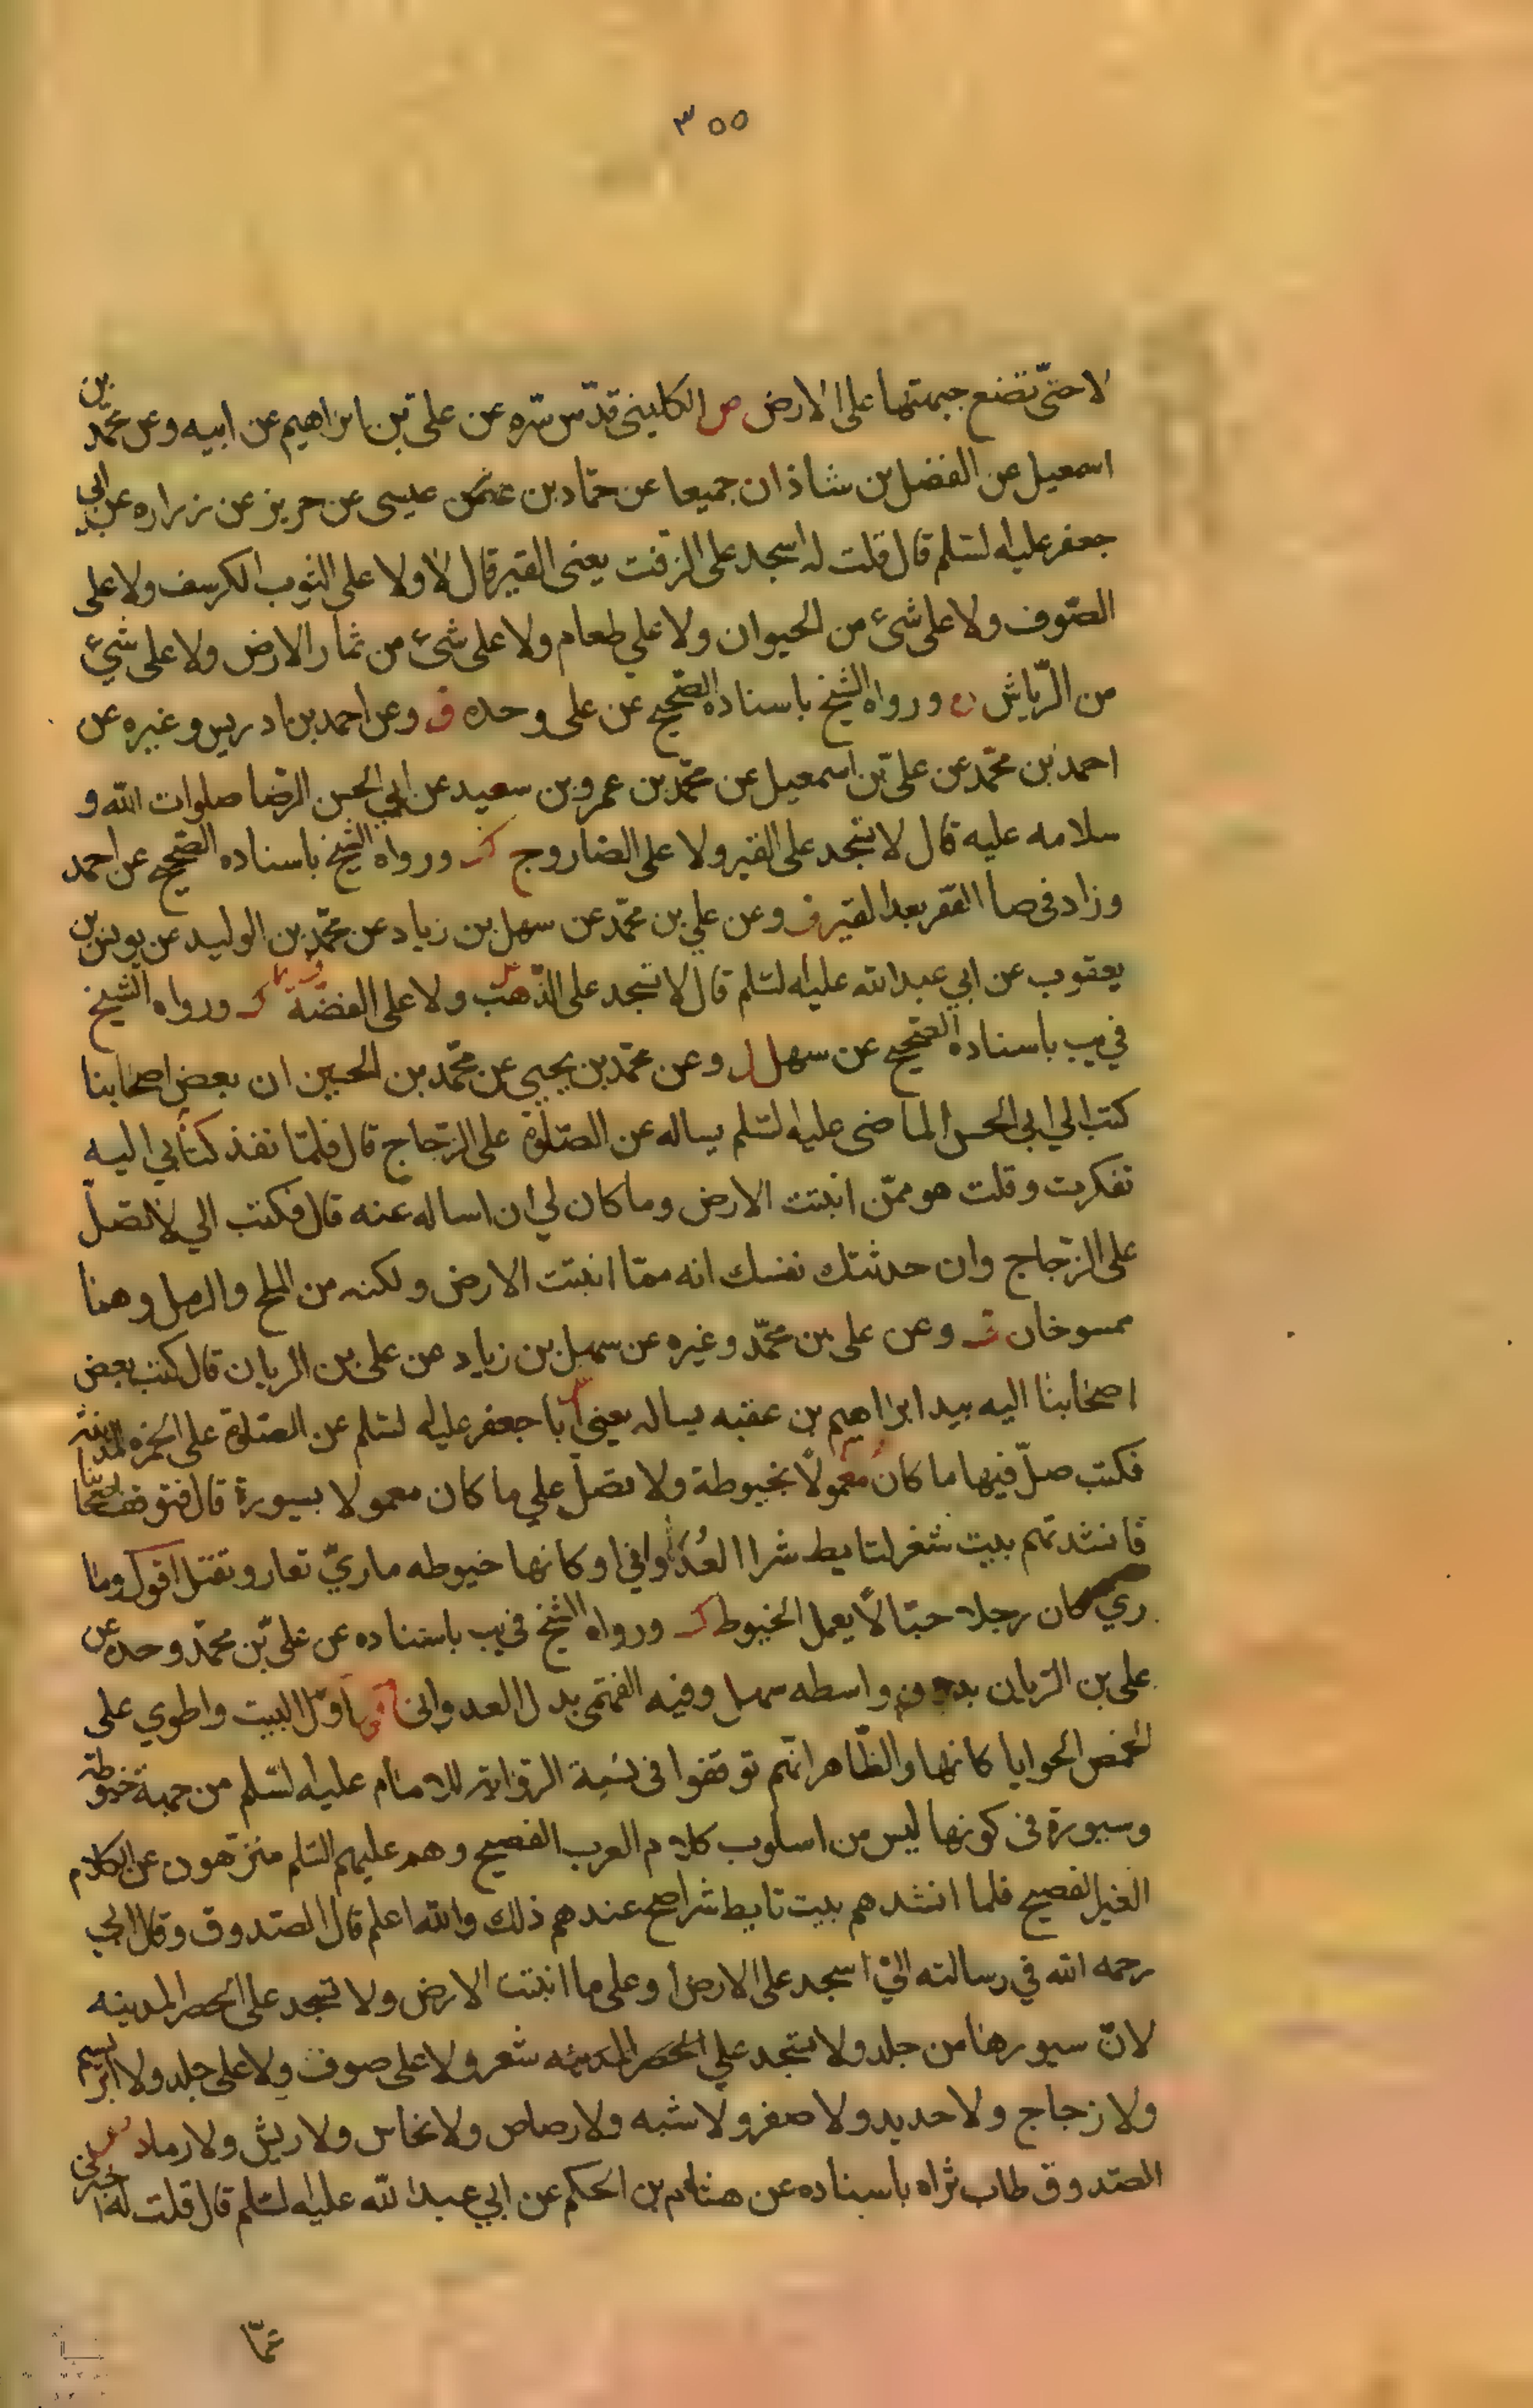 ٣٥٥
لا حتّى تضع جبهتها على الارض ص الكليني قدّس سّره عن علي بن ابراهيم عن ابيه وعن محمّد بن
اسمعيل عن الفضل بن شاذان جميعا عن حمّاد بن عيسى عن حريز عن زراره عن ابي
جعفر عليه السّلم قال قلت له اسجد على الزفت يعنى القير قال لا ولا على الثوب الكرسف ولا على
الصّوف ولا على شئ من الحيوان ولا علي طعام ولا على شئ من ثمار الارض ولا على شئ
من الرّياش ورواه الشيخ باسناده الصّحيح عن على وحده ق وعن احمد بن ادريس وغيره عن
احمد بن محمّد عن علىّ بن اسمعيل عن محمّد بن عمرو بن سعيد عن ابي الحسن الرّضا صلوات الله و
سلامه عليه قال لا تسجد على القير ولا على الصاروج ورواه الشيخ باسناده الصّحيح عن احمد
وزاد في صا القفر بعد القير ق وعن علي بن محمّد عن سهل بن زياد عن محمّد بن الوليد عن يونس بن
يعقوب عن ابي عبد الله عليه السّلم قال لا تسجد على الذّهب ولا على الفضّة ورواه الشيخ
في يب باسناده الصّحيح عن سهل وعن محمّد بن يحيى عن محمّد بن الحسين ان بعض اصحابنا
كتب الي ابي الحسن الماضى عليه السّلم يساله عن الصّلوة على الزّجاج قال فلمّا نفذ كتابي اليه
تفكرت وقلت هو ممّن انبتت الارض وما كان لي ان اساله عنه قال فكتب الي لا تصلّ
على الزّجاج وان حدثتك نفسك انه ممّا انبتت الارض ولكنه من الملح والرمل وهما
ممسوخان وعن على بن محمّد وغيره عن سهل بن زياد عن على بن الريان قال كتب بعض
اصحابنا اليه بيد ابراهيم بن عقبه يساله يعني ابا جعفر عليه السّلم عن الصّلوة على الخمره المدينه
فكتب صلّ فيها ما كان معمولا بخيوطة ولا تصلّ علي ما كان معمولا بسيورة قال فتوقف اصحابنا
فانشدتهم بيت شعر لتابط شرا العدواني او كانها خيوطه ماريّ تعار وتفتل اقول وما
ري كان رجلا حبّالا يعمل الخيوط ورواه الشيخ في يب باسناده عن علىّ بن محمّد وحده عن
على بن الرّيان بدون واسطه سهل وفيه الفهمى بدل العدوانى اوّل البيت واطوي على
الخمص الحوايا كانها والظّاهر انّهم توقفوا في نسبة الرّواية للامام عليه السّلم من جهة خيوطة
وسيورة في كونها ليس من اسلوب كلام العرب الفصيح وهم عليهم السّلم منزّهون عن الكلام
الغير الفصيح فلما انشدهم بيت تابط شرا صح عندهم ذلك والله اعلم قال الصّدوق وقال ابي
رحمه الله في رسالته اليّ اسجد على الارض او على ما انبتت الارض ولا تسجد على الحصر المدينه
لانّ سيورها من جلد ولا تسجد علي شعر ولا على صوف ولا على جلد ولا ابريسم
ولا زجاج ولا حديد ولا صفر ولا شبه ولا رصاص ولا نحاس ولا ريش ولا رماد
الصّدوق طاب ثراه باسناده عن هشام بن الحكم عن ابي عبد الله عليه السّلم قال قلت له اخبرنى
عمّا